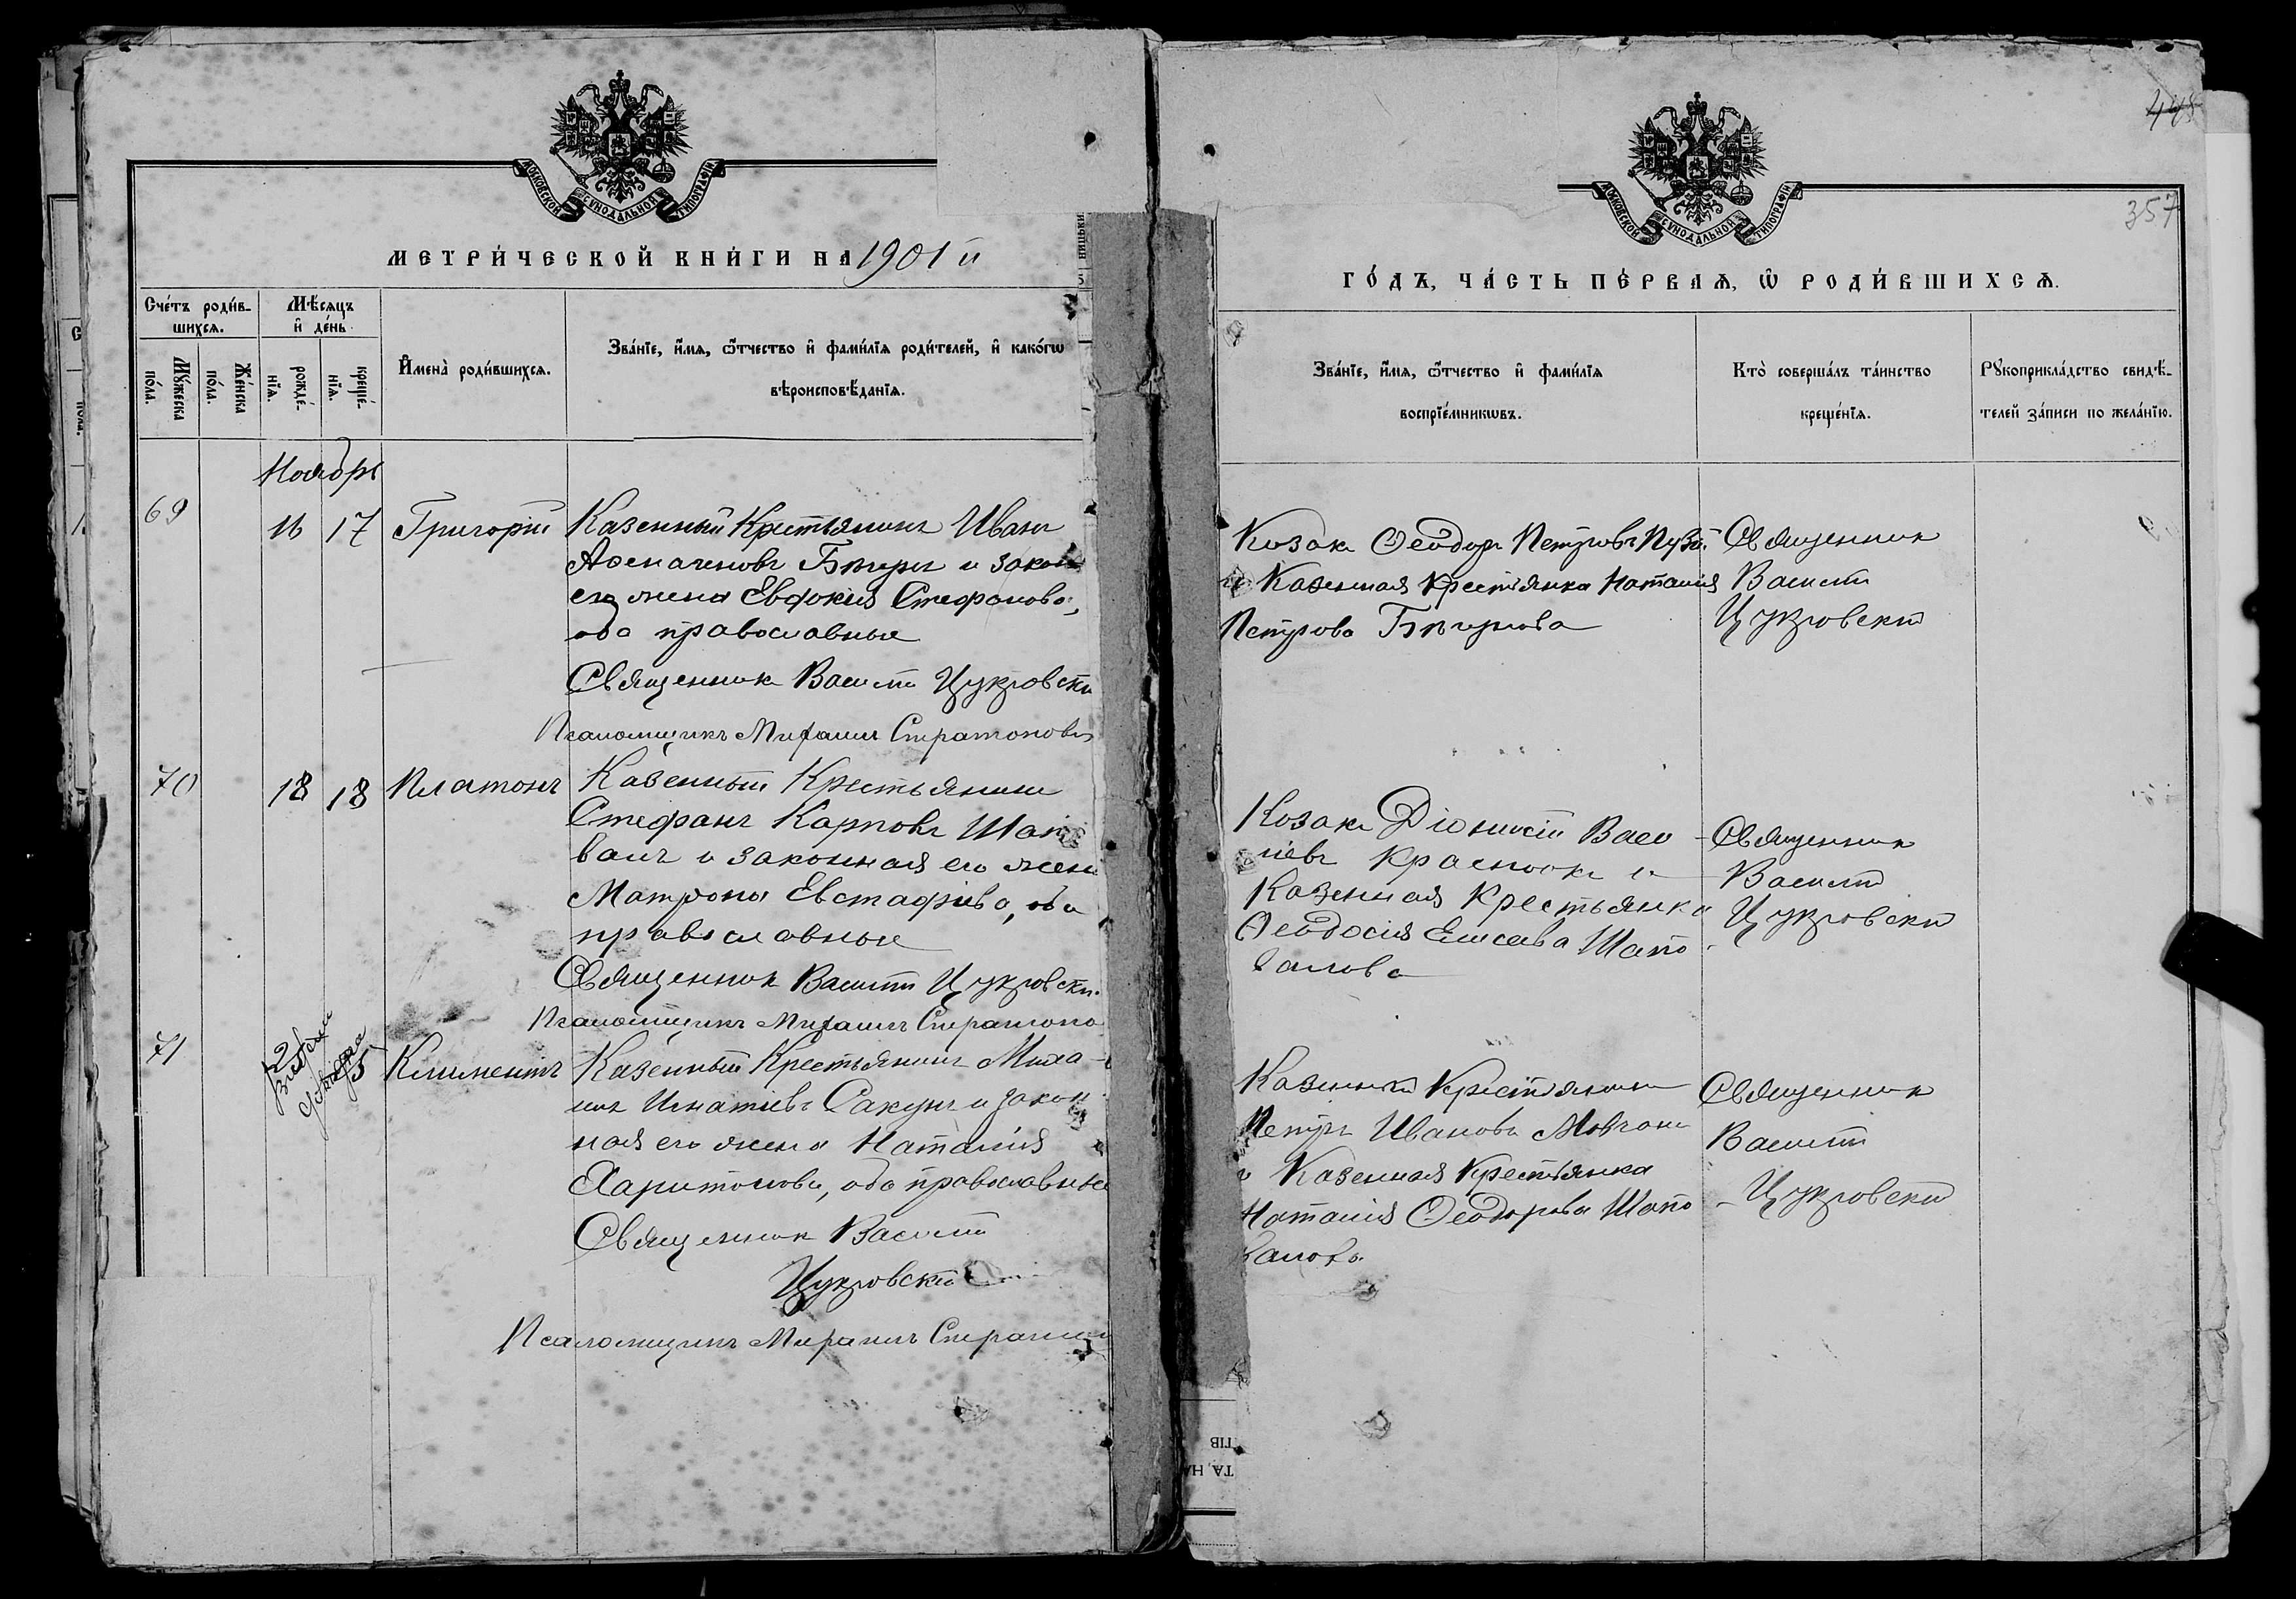 МОСКОВСКОЙ СѴНОДАЛЬНОЙ ТИПОГРАФІИ
МЕТРИ́ЧЕСКОЙ КНИ́ГИ НА 1901 й
Сче́тъ роди́вшихсѧ.
Мѣ́сѧцъ и҆ де́нь
Мꙋ́жеска по́ла.
Же́нска по́ла.
рожде́нїѧ.
креще́нїѧ.
И҆мена̀ роди́вшихсѧ.
Зва́нїе, и҆́мѧ, ѻ҆́тчество и҆ фами́лїѧ роди́телей, и҆ како́гѡ
вѣроисповѣ́данїѧ.
Ноябрь
69
16 17
Григорій
Казенный Крестьянинъ Иванъ
Бѣгунъ и закон
его жена Евдокия Стефанова,
оба православные
Священникъ Василій Цукровскій
Псаломщикъ Михаилъ Стратонов
70
18 18
Платонъ
Казенный Крестьянинъ
Стефанъ Карповъ Шапо
валъ и законная его жена
Матрона Евстафіева, оба
православные
Священникъ Василій Цукровскій
Псаломщикъ Михаилъ Стратоно
71
Климентъ
Казенный Крестьянинъ Миха-
илъ Игнатіевъ Сакунъ и закон
ная его жена Наталія
Харитонова, оба православные
Священникъ Василій
Цукровскій
Псаломщикъ Михаилъ Страт
448
357
МОСКОВСКОЙ СѴНОДАЛЬНОЙ ТИПОГРАФІИ
ГО́ДЪ, ЧА́СТЬ ПЕ́РВАѦ, Ѡ҆ РОДИ́ВШИХСѦ.
Зва́нїе, и҆́мѧ, ѻ҆́тчество и҆ фами́лїѧ
воспрїе́мникѡвъ.
Кто̀ соверша́лъ та́инство
креще́нїѧ.
Рꙋкоприкла́дство свидѣ́телей за́писи по жела́нїю.
Козакъ Ѳеодоръ Петровъ
и Казенная Крестьянка Наталія
Петрова Бѣгунова
Священникъ
Василій
Цукровскій
Козакъ Діонисій Васи
ліевъ Краснокъ и
Казенная Крестьянка
Ѳеодосія Елисеева Шапо
валова
Священникъ
Василій
Цукровскій
Казенный Крестьянинъ
Петръ Ивановъ Мовчанъ
и Казенная Крестьянка
Наталія Ѳеодорова Шапо
валова
Священникъ
Василій
Цукровскій